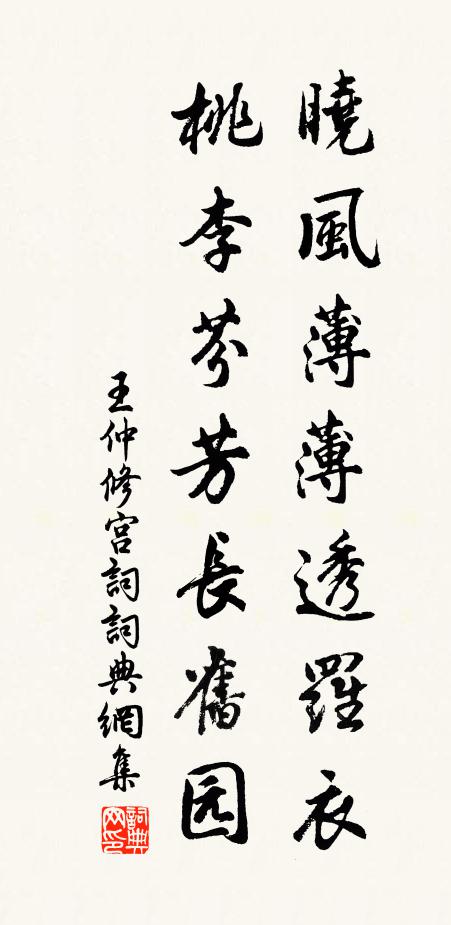 曉風薄薄透羅衣
桃李芬芳長舊园
王仲修宫詞詞典網集
詞典网印